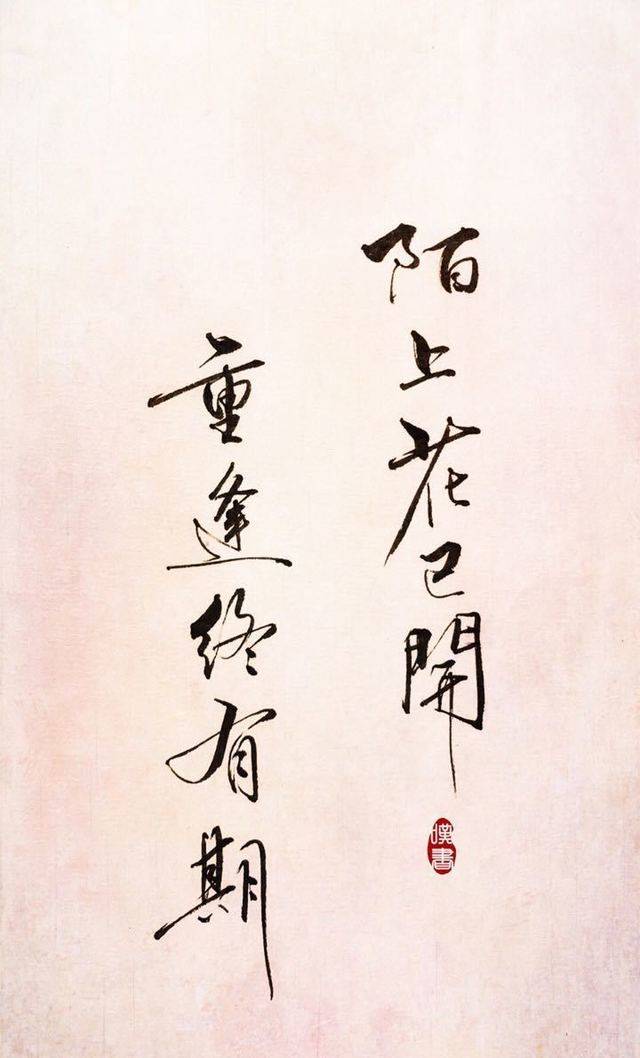 陌上花已開
重逢終有期
嘆書